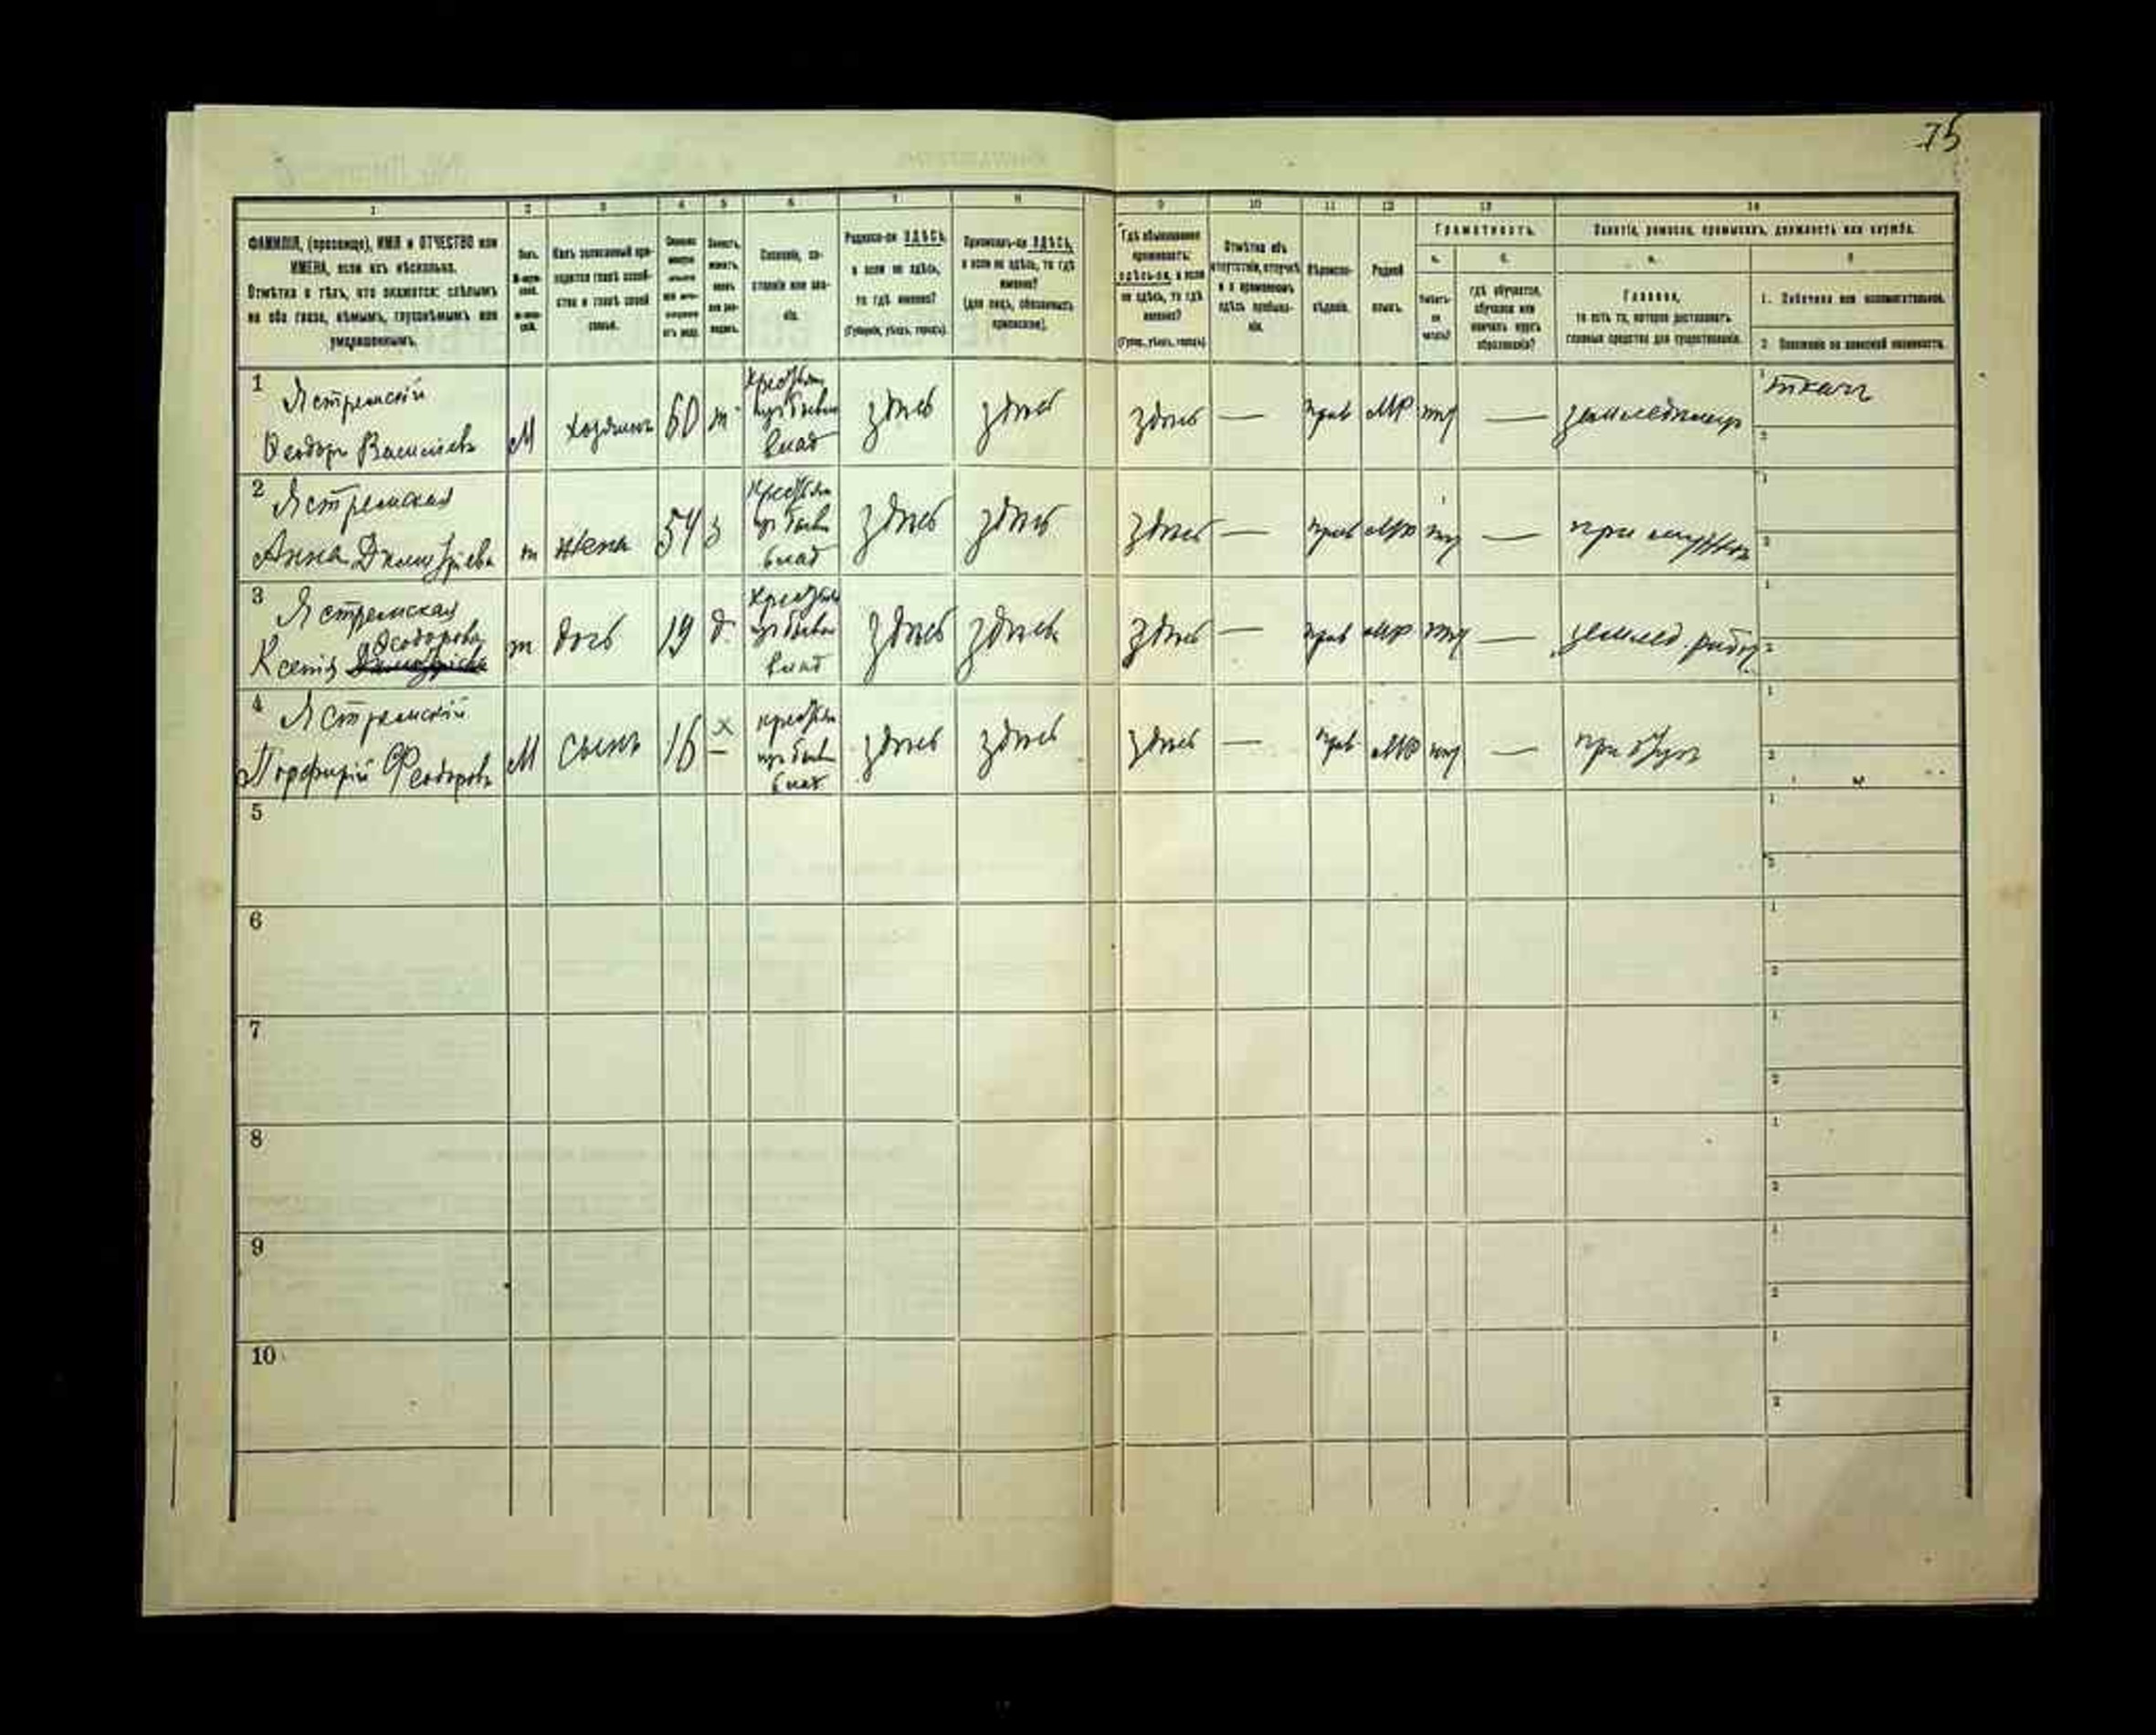 75
1 2 3 4 5 6 7 8 9 10 11 12 13 14
ФАМИЛІЯ, (прозвище), ИМЯ и ОТЧЕСТВО или
ИМЕНА, если ихъ нѣсколько.
Отмѣтка о тѣхъ, кто окажется: слѣпымъ
на оба глаза, нѣмымъ, глухонѣмымъ или
умалишеннымъ.
Полъ.
Какъ записанный при-
ходится главѣ хозяй-
ства и главѣ своей
семьи.
Холостъ,
женатъ,
вдовъ
или раз-
веденъ.
Сословіе, со-
стояніе или зва-
ніе.
Родился-ли ЗДѢСЬ,
а если не здѣсь,
то гдѣ именно?
(Губернія, уѣздъ, городъ).
Приписанъ-ли ЗДѢСЬ,
а если не здѣсь, то гдѣ
именно?
(для лицъ, обязанныхъ
припискою).
Гдѣ обыкновенно
проживаетъ:
здѣсь-ли, а если
не здѣсь, то гдѣ
именно?
(Губер., уѣздъ, городъ)
Отмѣтка объ
отсутствіи, отлучкѣ
и о временномъ
здѣсь пребыва-
ніи.
Вѣроиспо-
вѣданіе.
Родной
языкъ.
Грамотность.
а. б.
Умѣетъ-
ли
читать?
гдѣ обучается,
обучался или
кончилъ курсъ
образованія?
Занятіе, ремесло, промыселъ, должность или служба.
а. б
Главное,
то есть то, которое доставляетъ
главныя средства для существованія.
1. Побочное или вспомогательное.
2. Положеніе по воинской повинности.
1 Ястремскій
Феодоръ Васильевъ
М хозяинъ 60 ж
крестьян
изъ бывш
влад
здѣсь здѣсь здѣсь — прав МР нѣт — земледѣлецъ
1 ткачъ
2
2 Ястремская
Анна Дмитріева
ж жена 54 з
крестьян
изъ бывш
влад
здѣсь здѣсь здѣсь — прав МР нѣт — при мужѣ
1
2
3 Ястремская
Феодорова
Ксенія Дмитріева
ж дочь 19 д
крестьян
изъ бывш
влад
здѣсь здѣсь здѣсь — прав МР нѣт — землед. работ
1
2
4 Ястремскій
Порфирій Феодоровъ
М сынъ 16 х
—
крестьян
изъ бывш
влад
здѣсь здѣсь здѣсь — прав МР нѣт — при отцѣ
1
2
5
1
2
6
1
2
7
1
2
8
1
2
9
1
2
10
1
2